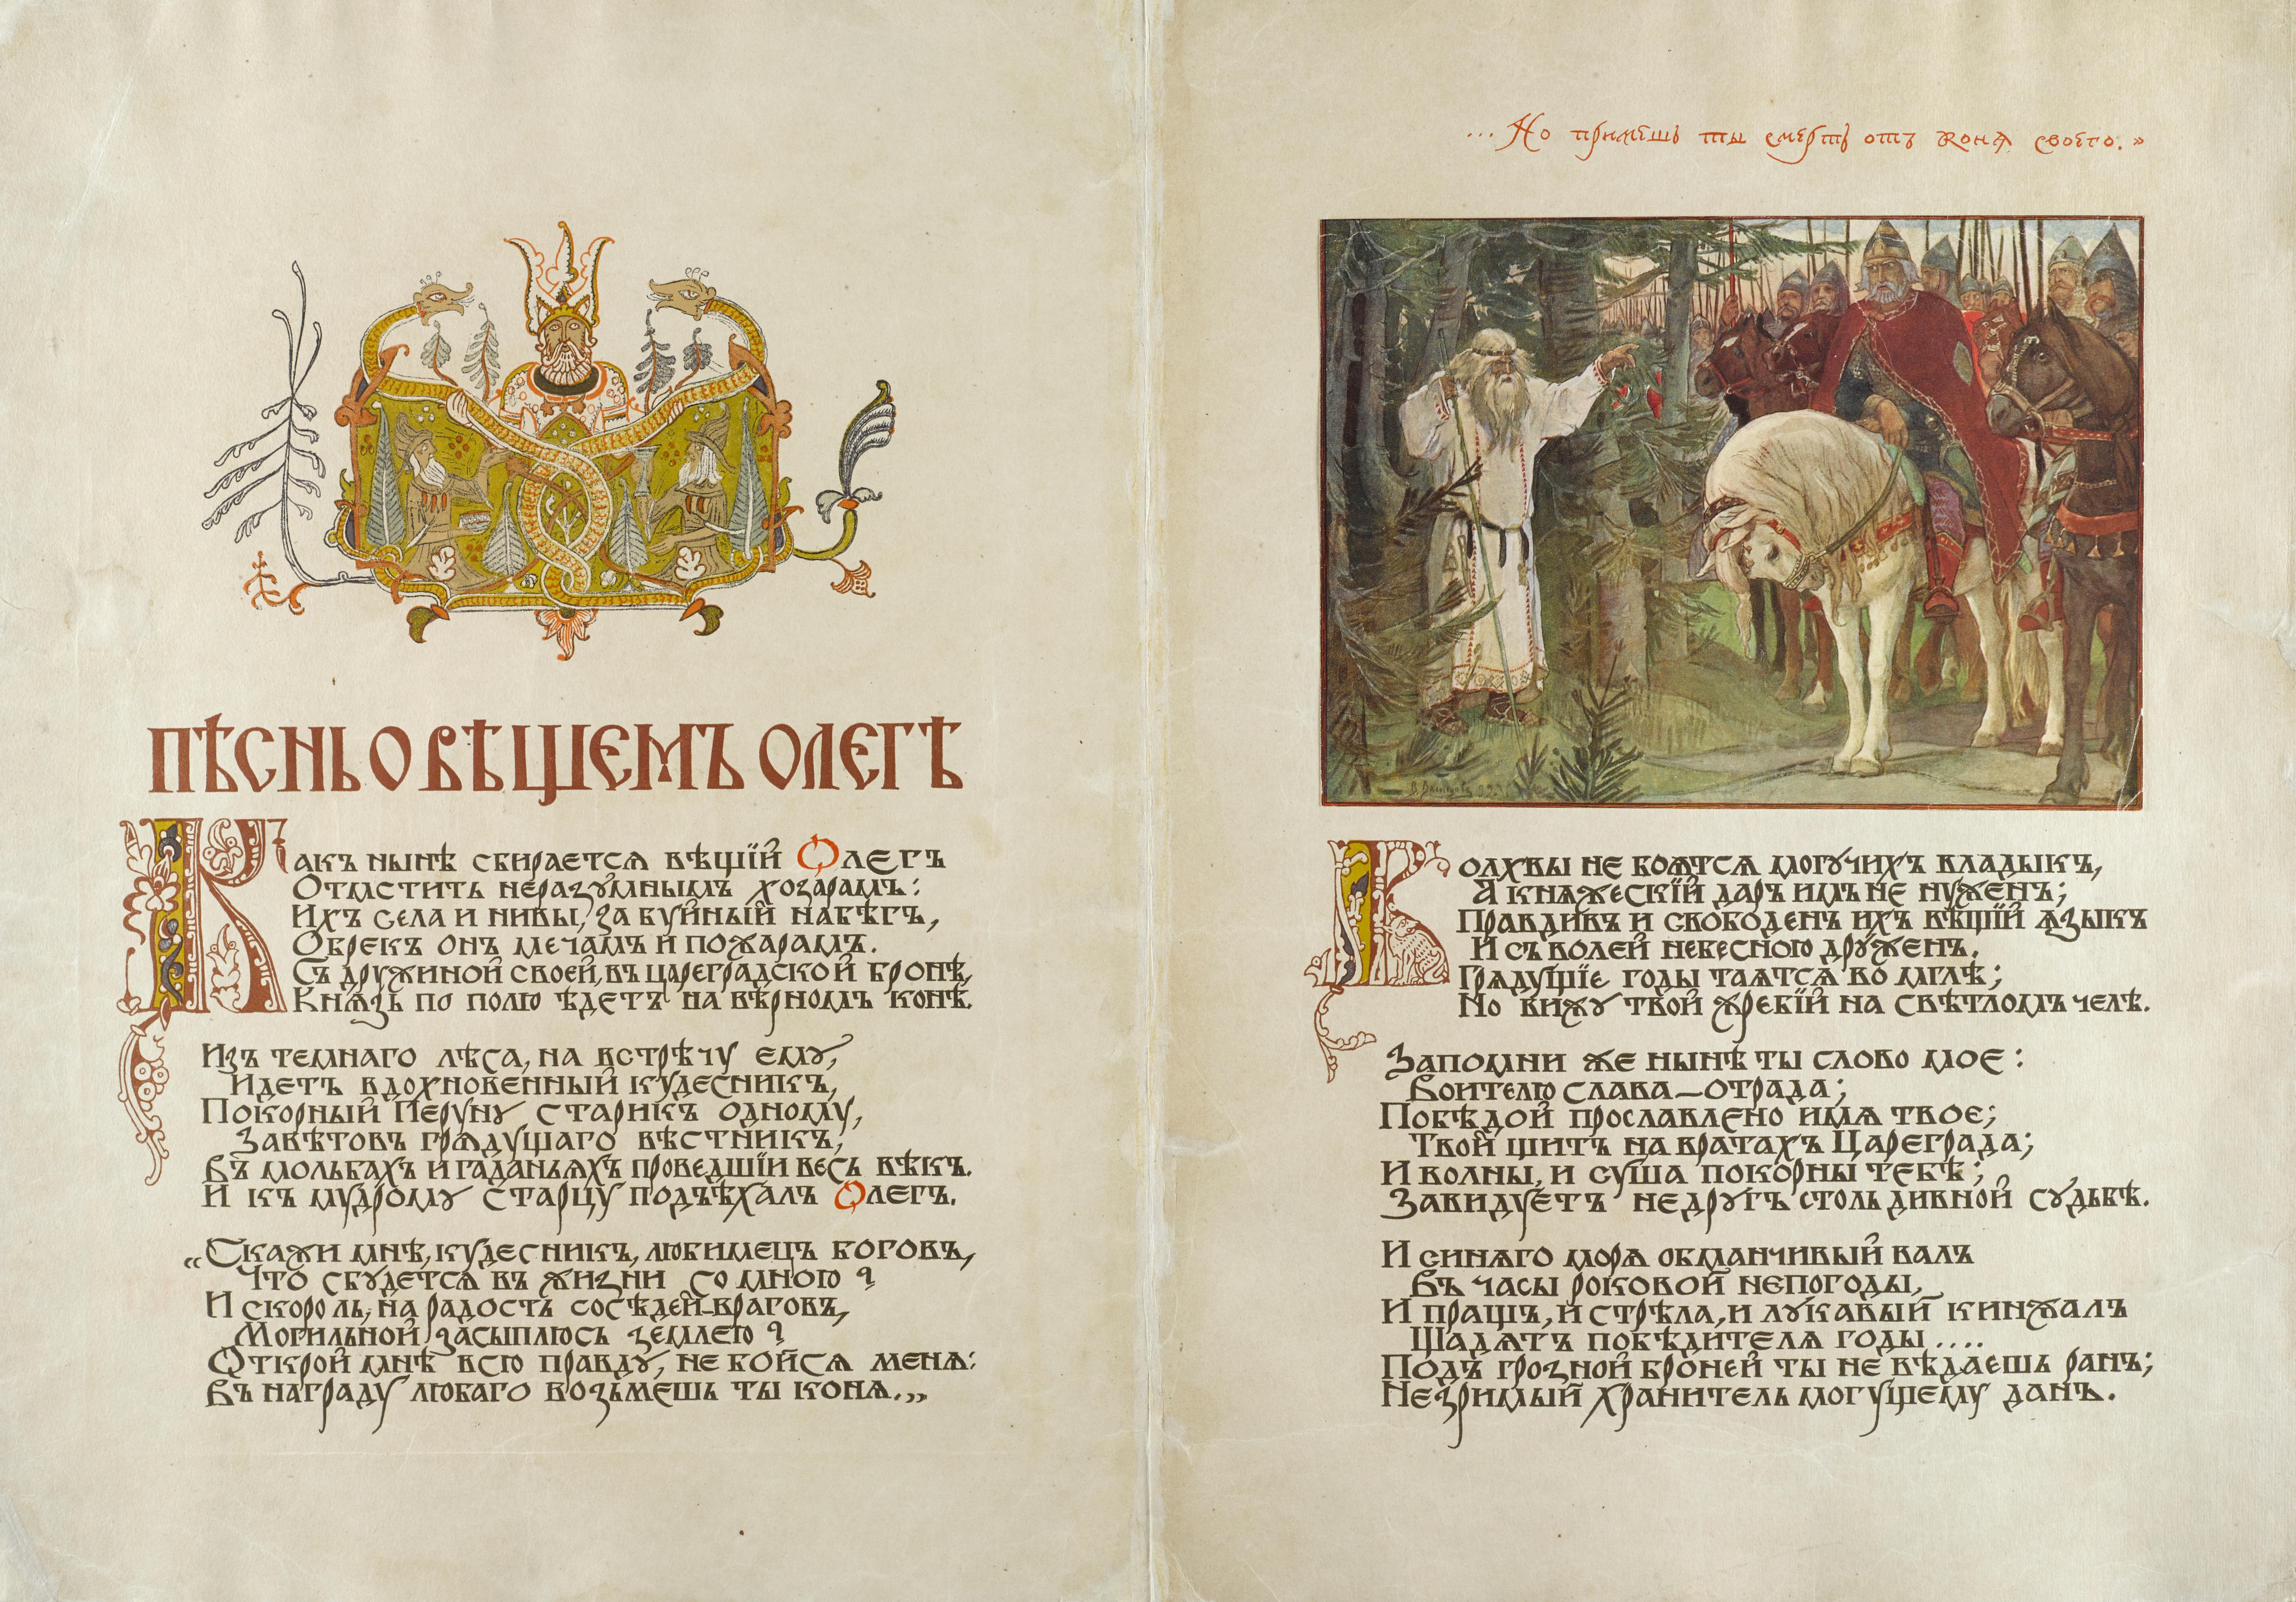 ПѢСНЬ О ВѢЩЕМЪ ОЛЕГѢ
Какъ нынѣ сбирается вѣщій Олегъ
Отмстить неразумнымъ хозарамъ:
Ихъ села и нивы, за буйный набѣгъ,
Обрекъ онъ мечамъ и пожарамъ.
Съ дружиной своей, въ цареградской бронѣ,
Князь по полю ѣдетъ на вѣрномъ конѣ.
Изъ темнаго лѣса, на встрѣчу ему,
Идетъ вдохновенный кудесникъ,
Покорный Перуну старикъ одному,
Завѣтовъ грядущаго вѣстникъ,
Въ мольбахъ и гаданьяхъ проведшій весь вѣкъ.
И къ мудрому старцу подъѣхалъ Олегъ.
„Скажи мнѣ, кудесникъ, любимецъ боговъ,
Что сбудется въ жизни со мною?
И скоро ль, на радость сосѣдей-враговъ,
Могильной засыплюсь землею?
Открой мнѣ всю правду, не бойся меня:
Въ награду любаго возьмешь ты коня.„
...Но примешь ты смерть отъ коня своего.»
В. Васнецовъ
Волхвы не боятся могучихъ владыкъ,
А княжескій даръ имъ не нуженъ;
Правдивъ и свободенъ ихъ вѣщій языкъ
И съ волей небесною друженъ.
Грядущіе годы таятся во мглѣ;
Но вижу твой жребій на свѣтломъ челѣ.
Запомни же нынѣ ты слово мое:
Воителю слава—отрада;
Побѣдой прославлено имя твое;
Твой щитъ на вратахъ Цареграда;
И волны, и суша покорны тебѣ;
Завидуетъ недругъ столь дивной судьбѣ.
И синяго моря обманчивый валъ
Въ часы роковой непогоды,
И пращъ, и стрѣла, и лукавый кинжалъ
Щадятъ побѣдителя годы....
Подъ грозной броней ты не вѣдаешь ранъ;
Незримый хранитель могущему данъ.